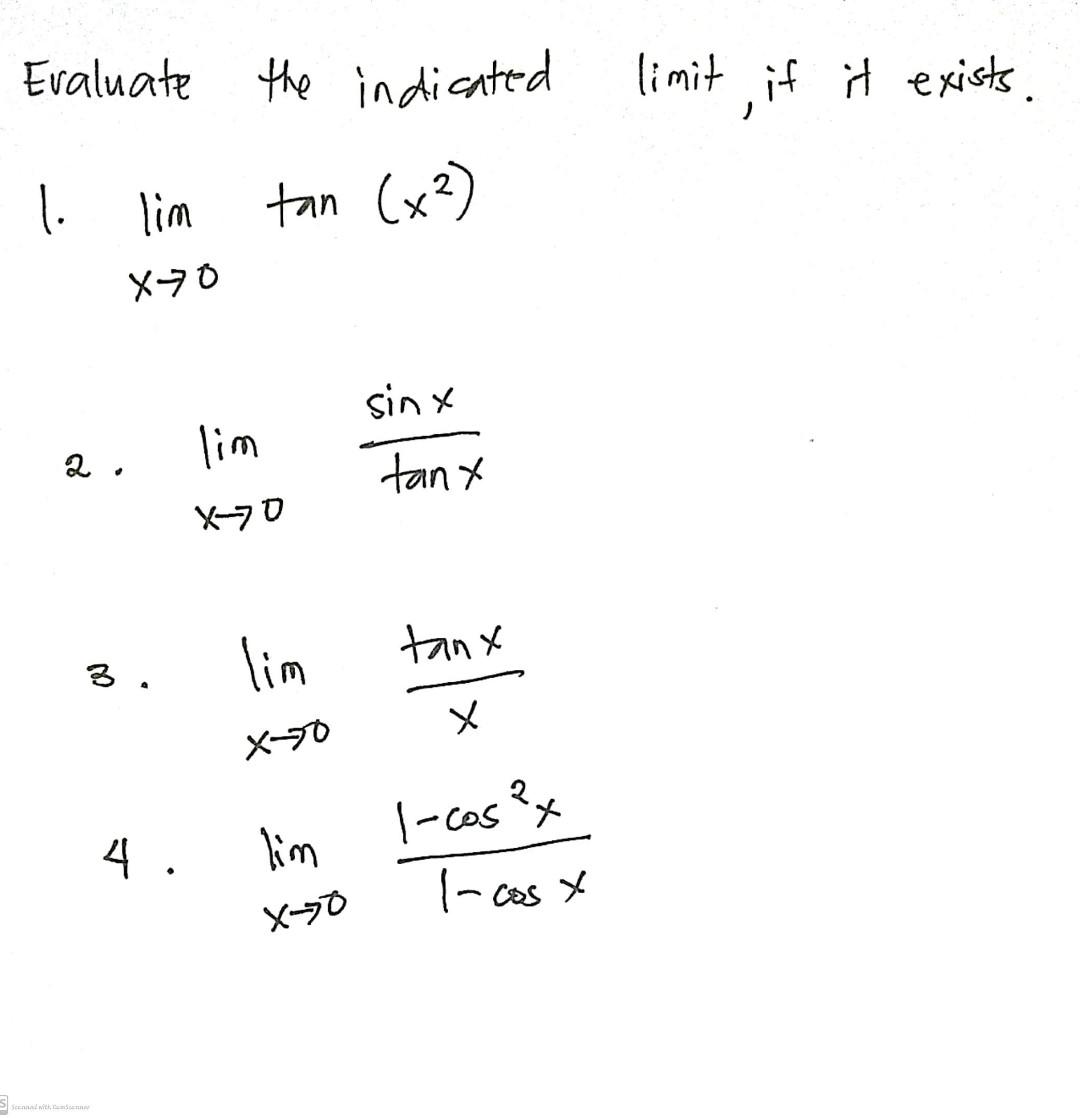 Evaluate the indicated limit, if it exists.
1. lim tan (x²)
x→0
2. lim sin x / tan x
x→0
3. lim tan x / x
x→0
4. lim 1-cos²x / 1-cos x
x→0
S Scanned with CamScanner